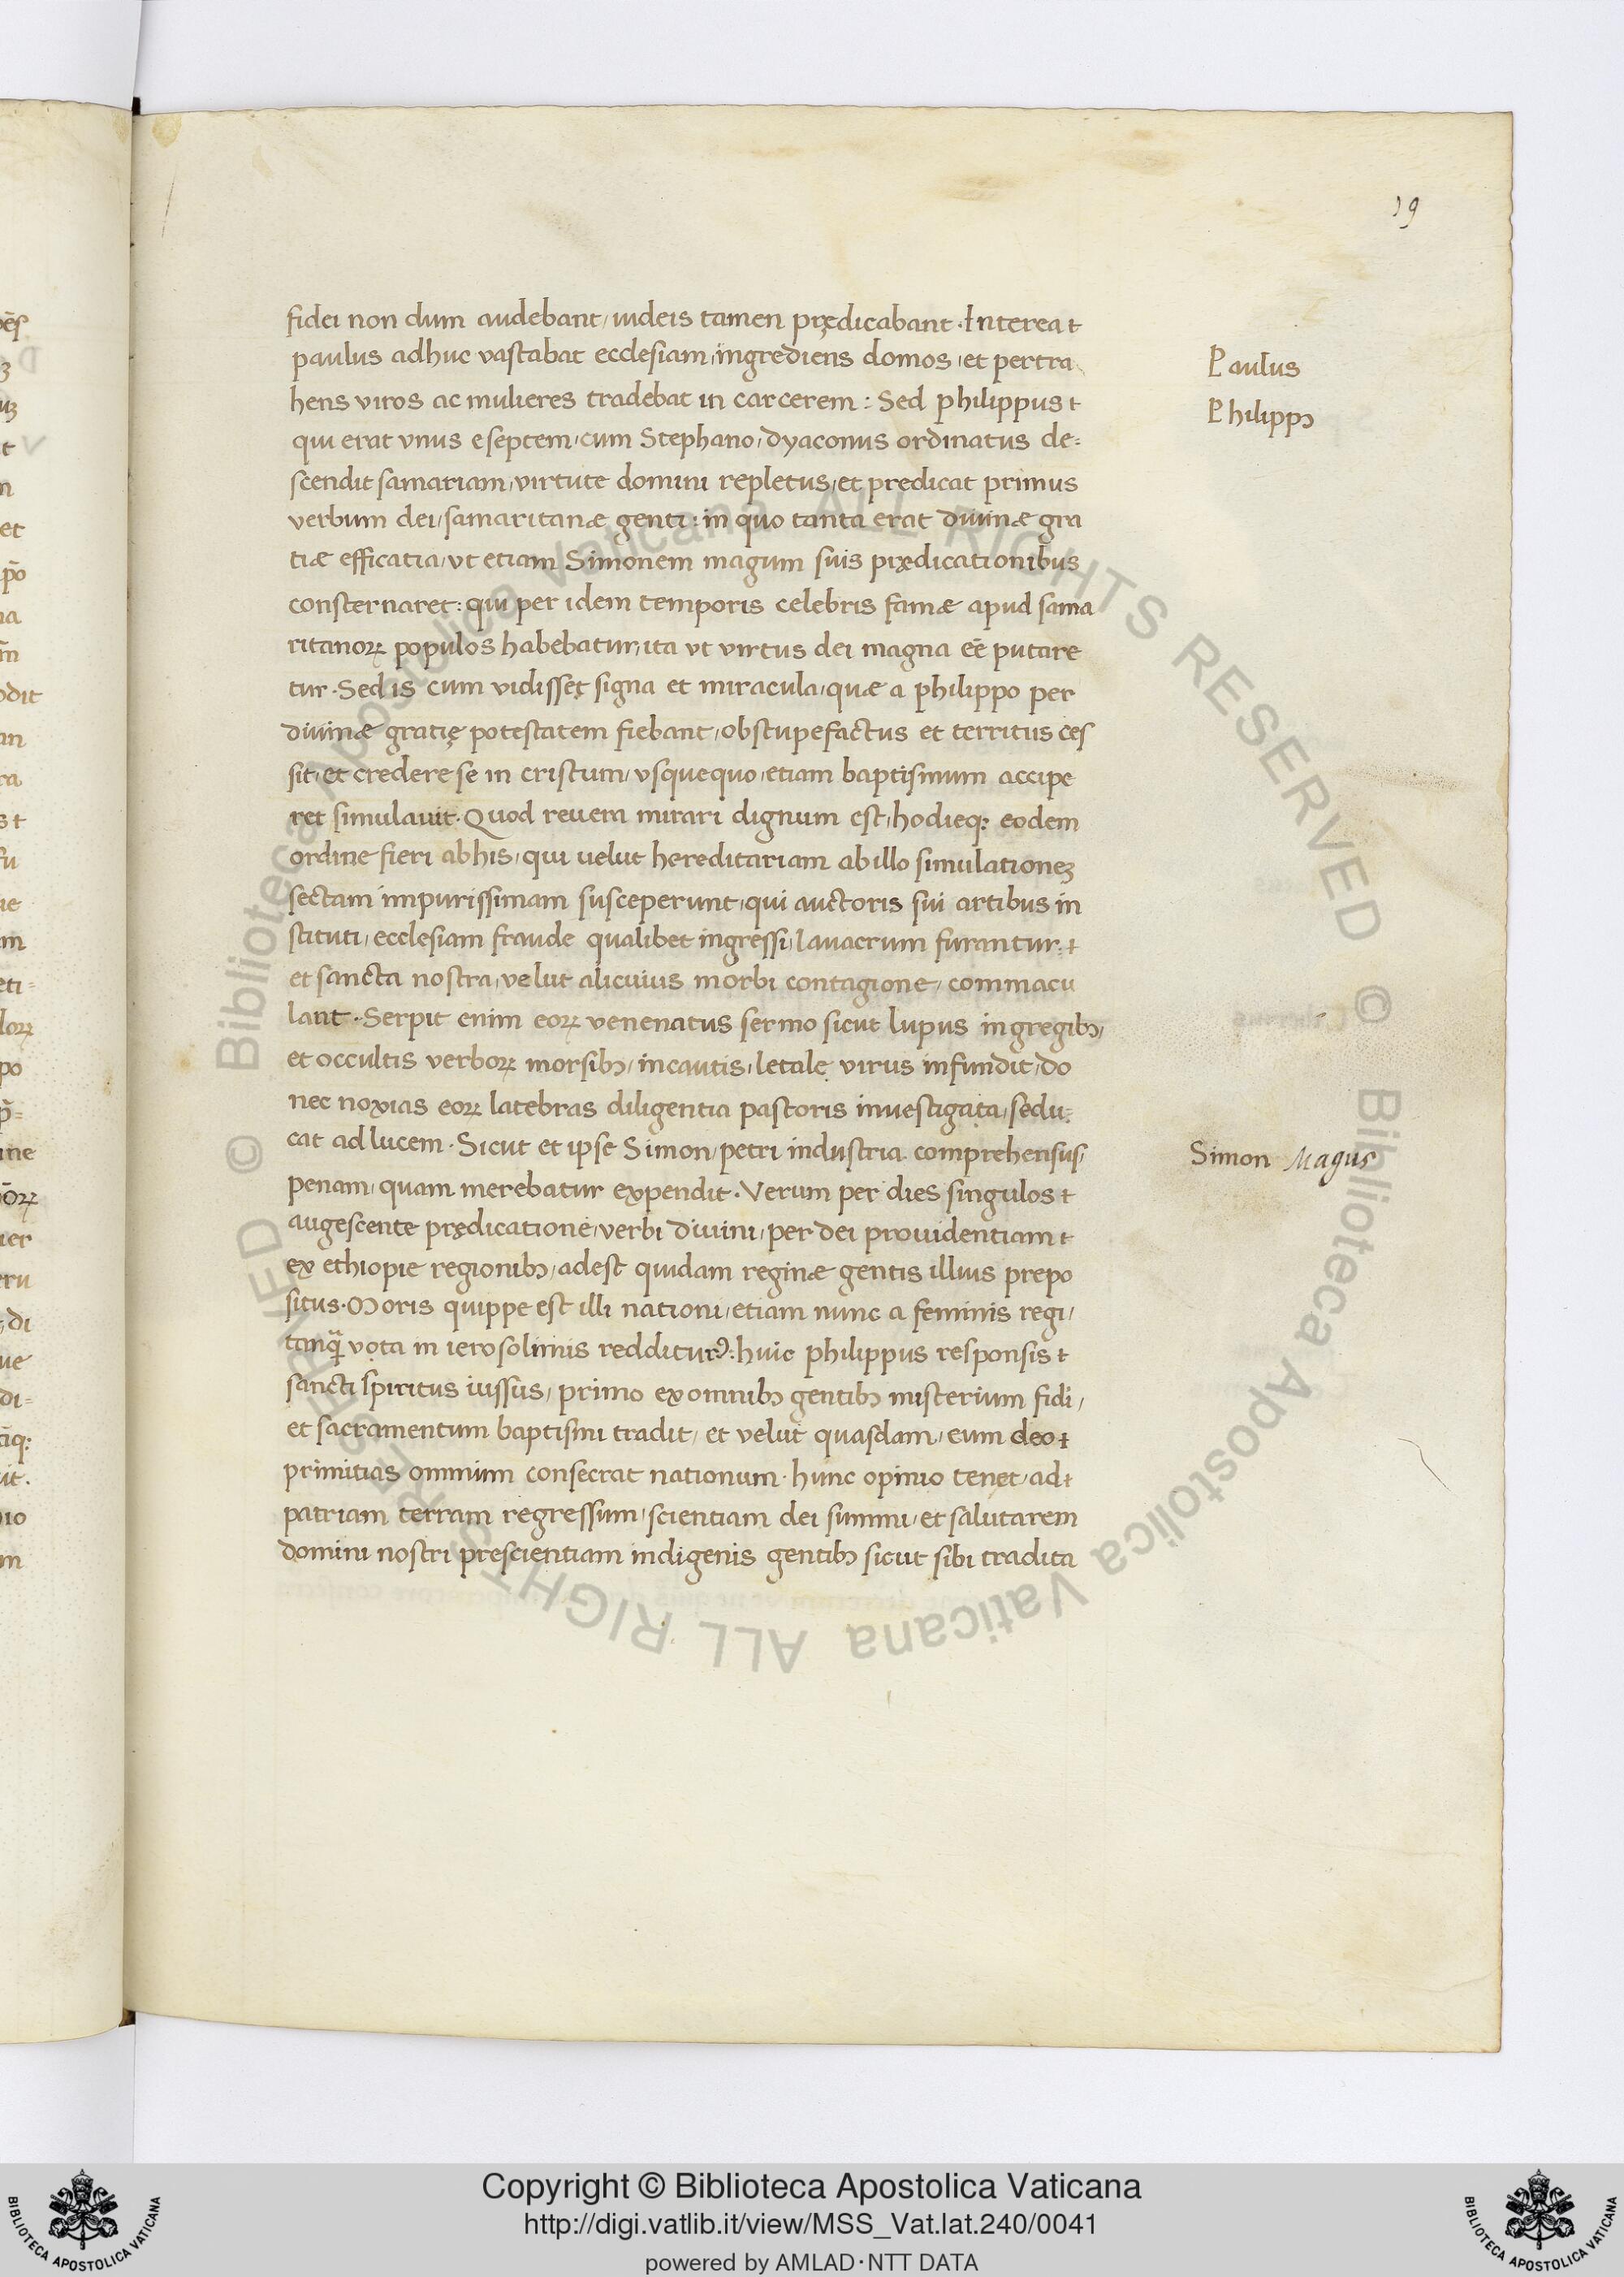 19
fidei non dum audebant, iudeis tamen prędicabant. Interea
paulus adhuc vastabat ecclesiam, ingrediens domos, et pertra
hens viros ac mulieres tradebat in carcerem: Sed philippus
qui erat vnus e septem, cum Stephano, dyaconus ordinatus de=
scendit samariam, virtute domini repletus, et predicat primus
verbum dei, samaritanæ genti: in quo tanta erat diuinæ gra
tiæ efficatia, vt etiam Simonem magum suis prędicationibus
consternaret: qui per idem temporis celebris famæ apud sama
ritanoꝝ populos habebatur, ita vt virtus dei magna eē putare
tur. Sed is cum vidisset signa et miracula, quæ a philippo per
diuinæ gratię potestatem fiebant, obstupefactus et territus ces
sit, et credere se in cristum, vsquequo, etiam baptismum accipe
ret simulauit. Quod reuera mirari dignum est, hodieq; eodem
ordine fieri ab his, qui uelut hereditariam ab illo simulationeꝫ
sectam impurissimam susceperunt, qui auctoris sui artibus in
stituti, ecclesiam fraude qualibet ingressi, lauacrum furantur,
et sancta nostra, velut alicuius morbi contagione, commacu
lant. Serpit enim eoꝝ venenatus sermo sicut lupus in gregibꝯ,
et occultis verboꝝ morsibꝯ, incautis, letale virus infundit, do
nec noxias eoꝝ latebras diligentia pastoris inuestigata, sedu=
cat ad lucem. Sicut et ipse Simon, petri industria comprehensus,
penam, quam merebatur expendit. Verum per dies singulos
augescente prędicatione, verbi diuini, per dei prouidentiam
ex ethiopie regionibꝯ, adest quidam reginæ gentis illius prepo
situs. Moris quippe est illi nationi, etiam nunc a feminis regi,
vota in ierosolimis redditurꝰ: huic philippus responsis
sancti spiritus iussus, primo ex omnibꝯ gentibꝯ misterium fidi,
et sacramentum baptismi tradit, et velut quasdam, eum deo
primitias omnium consecrat nationum. hunc opinio tenet, ad
patriam terram regressum, scientiam dei summi, et salutarem
domini nostri prescientiam indigenis gentibꝯ sicut sibi tradita
Paulus
Philippꝯ
Simon Magus
© Biblioteca Apostolica Vaticana ALL RIGHTS RESERVED
© Biblioteca Apostolica Vaticana ALL RIGHTS RESERVED
Copyright © Biblioteca Apostolica Vaticana
http://digi.vatlib.it/view/MSS_Vat.lat.240/0041
powered by AMLAD·NTT DATA
BIBLIOTECA APOSTOLICA VATICANA
BIBLIOTECA APOSTOLICA VATICANA